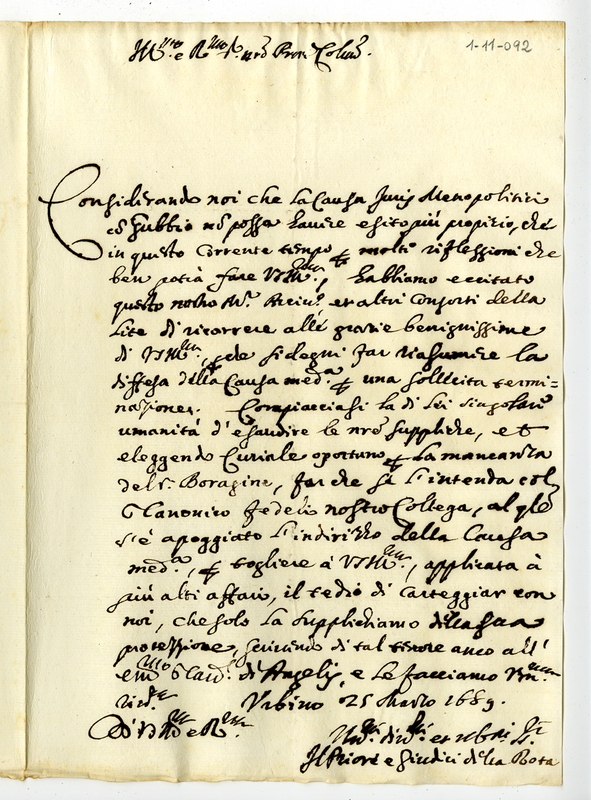 1-11-092
Ill.mo e R.mo S. nrõ Pron Col.mo
Considerando noi che la Causa Juris Metropolitici
cõ Gubbio nõ possa havere esito più propizio, che
in questo corrente tempo p molte riflessioni che
ben potrà fare VSIll.ma, habbiamo eccitato
questo nostro M.r et altri Consorti della
Lite di ricorrere alle grazie benignissime
di VSIll.ma, che si degni far riassumere la
diffesa della Causa med.a p una sollecita termi=
nazione. Compiacciasi la di Lei singolare
umanità d'esaudire le nrẽ suppliche, et
eleggendo Curiale oportuno p la mancanza
del S. Boragine, far che se l'intenda col
S Canonico Fedeli nostro Collega, al qlẽ
s'è apoggiato l'indirizzo della Causa
med.a, p togliere à VSIll.ma, applicata à
più alti affari, il tedio di carteggiar con
noi, che solo la supplichiamo della sua
protezzione, scrivendo di tal tenore anco all'
em.mo S Card. di Angelis, e le facciamo
riv.za Urbino 25 Marzo 1689.
Di VS Ill.ma e R.ma
Il Priore e Giudici della Rota